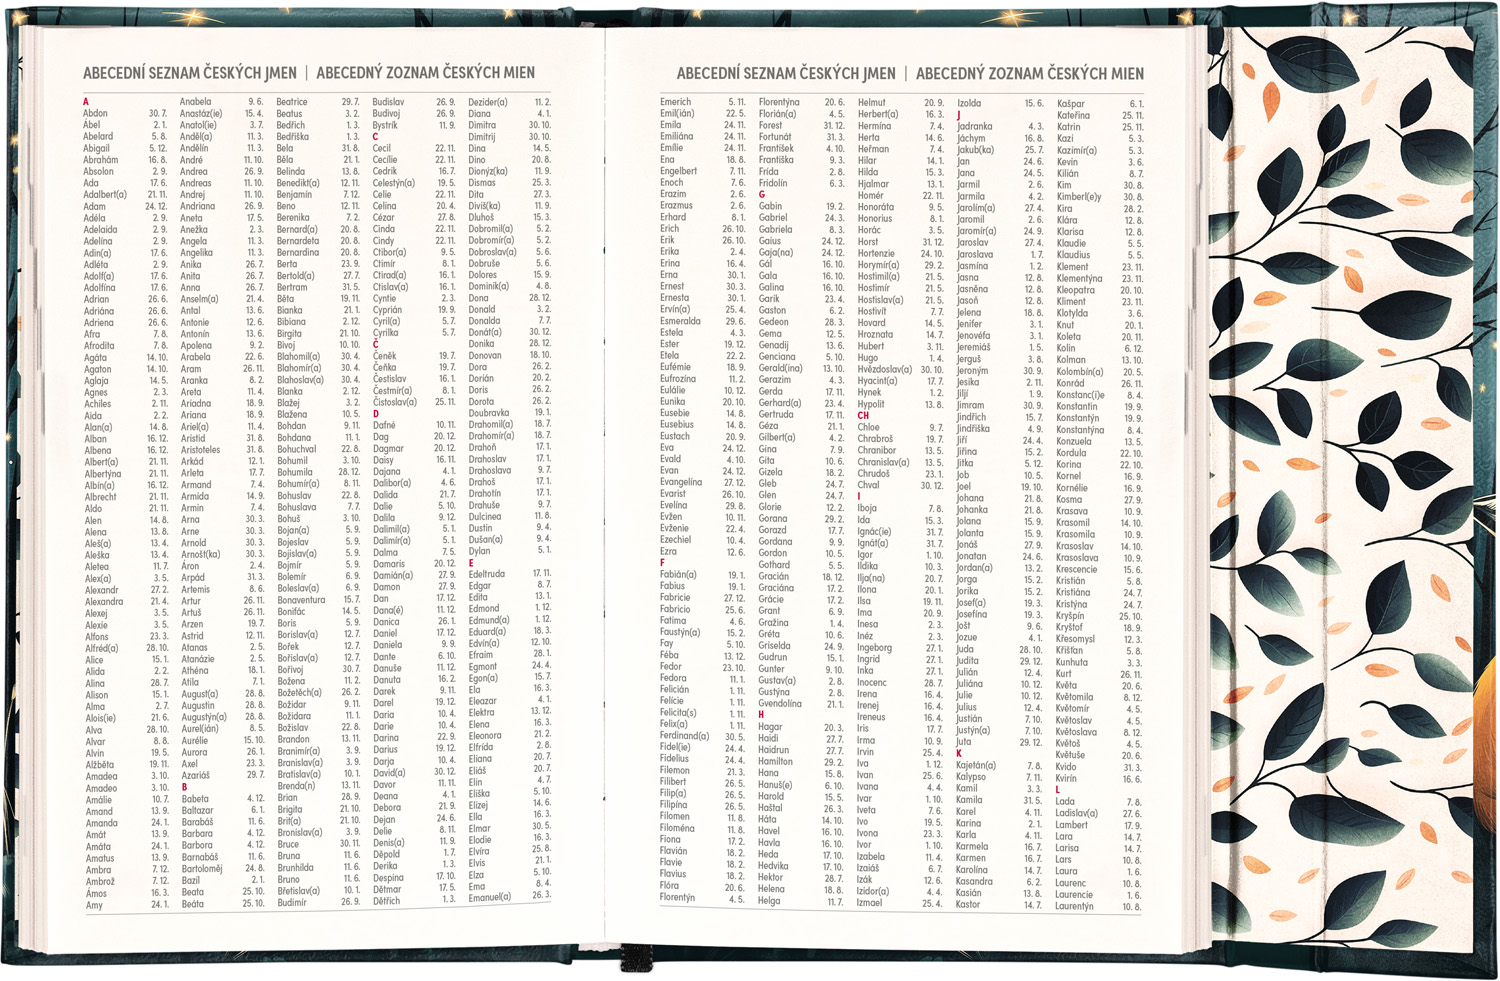 ABECEDNÍ SEZNAM ČESKÝCH JMEN | ABECEDNÝ ZOZNAM ČESKÝCH MIEN
A
Abdon 30. 7.
Ábel 2. 1.
Abelard 5. 8.
Abigail 5. 12.
Abrahám 16. 8.
Absolon 2. 9.
Ada 17. 6.
Adalbert(a) 21. 11.
Adam 24. 12.
Adéla 2. 9.
Adelaida 2. 9.
Adelína 2. 9.
Adin(a) 17. 6.
Adléta 2. 9.
Adolf(a) 17. 6.
Adolfína 17. 6.
Adrian 26. 6.
Adriána 26. 6.
Adriena 26. 6.
Afra 7. 8.
Afrodita 7. 8.
Agáta 14. 10.
Agaton 14. 10.
Aglaja 14. 5.
Agnes 2. 3.
Achiles 2. 11.
Aida 2. 2.
Alan(a) 14. 8.
Alban 16. 12.
Albena 16. 12.
Albert(a) 21. 11.
Albertýna 21. 11.
Albín(a) 16. 12.
Albrecht 21. 11.
Aldo 21. 11.
Alen 14. 8.
Alena 13. 8.
Aleš(a) 13. 4.
Aleška 13. 4.
Aletea 11. 7.
Alex(a) 3. 5.
Alexandr 27. 2.
Alexandra 21. 4.
Alexej 3. 5.
Alexie 3. 5.
Alfons 23. 3.
Alfréd(a) 28. 10.
Alice 15. 1.
Alida 2. 2.
Alina 28. 7.
Alison 15. 1.
Alma 2. 7.
Alois(ie) 21. 6.
Alva 28. 10.
Alvar 8. 8.
Alvin 19. 5.
Alžběta 19. 11.
Amadea 3. 10.
Amadeo 3. 10.
Amálie 10. 7.
Amand 13. 9.
Amanda 24. 1.
Amát 13. 9.
Amáta 24. 1.
Amatus 13. 9.
Ambra 7. 12.
Ambrož 7. 12.
Ámos 16. 3.
Amy 24. 1.
Anabela 9. 6.
Anastáz(ie) 15. 4.
Anatol(ie) 3. 7.
Anděl(a) 11. 3.
Andělín 11. 3.
André 11. 10.
Andrea 26. 9.
Andreas 11. 10.
Andrej 11. 10.
Andriana 26. 9.
Aneta 17. 5.
Anežka 2. 3.
Angela 11. 3.
Angelika 11. 3.
Anika 26. 7.
Anita 26. 7.
Anna 26. 7.
Anselm(a) 21. 4.
Antal 13. 6.
Antonie 12. 6.
Antonín 13. 6.
Apolena 9. 2.
Arabela 22. 6.
Aram 26. 11.
Aranka 8. 2.
Areta 11. 4.
Ariadna 18. 9.
Ariana 18. 9.
Ariel(a) 11. 4.
Aristid 31. 8.
Aristoteles 31. 8.
Arkád 12. 1.
Arleta 17. 7.
Armand 7. 4.
Armida 14. 9.
Armin 7. 4.
Arna 30. 3.
Arne 30. 3.
Arnold 30. 3.
Arnošt(ka) 30. 3.
Áron 2. 4.
Arpád 31. 3.
Artemis 8. 6.
Artur 26. 11.
Artuš 26. 11.
Arzen 19. 7.
Astrid 12. 11.
Atanas 2. 5.
Atanázie 2. 5.
Athéna 18. 1.
Atila 7. 1.
August(a) 28. 8.
Augustin 28. 8.
Augustýn(a) 28. 8.
Aurel(ián) 8. 5.
Aurélie 15. 10.
Aurora 26. 1.
Axel 23. 3.
Azariáš 29. 7.
B
Babeta 4. 12.
Baltazar 6. 1.
Barabáš 11. 6.
Barbara 4. 12.
Barbora 4. 12.
Barnabáš 11. 6.
Bartoloměj 24. 8.
Bazil 2. 1.
Beata 25. 10.
Beáta 25. 10.
Beatrice 29. 7.
Beatus 3. 2.
Bedřich 1. 3.
Bedřiška 1. 3.
Bela 31. 8.
Běla 21. 1.
Belinda 13. 8.
Benedikt(a) 12. 11.
Benjamín 7. 12.
Beno 12. 11.
Berenika 7. 2.
Bernard(a) 20. 8.
Bernardeta 20. 8.
Bernardina 20. 8.
Berta 23. 9.
Bertold(a) 27. 7.
Bertram 31. 5.
Běta 19. 11.
Bianka 21. 1.
Bibiana 2. 12.
Birgita 21. 10.
Bivoj 10. 10.
Blahomil(a) 30. 4.
Blahomír(a) 30. 4.
Blahoslav(a) 30. 4.
Blanka 2. 12.
Blažej 3. 2.
Blažena 10. 5.
Bohdan 9. 11.
Bohdana 11. 1.
Bohuchval 22. 8.
Bohumil 3. 10.
Bohumila 28. 12.
Bohumír(a) 8. 11.
Bohuslav 22. 8.
Bohuslava 7. 7.
Bohuš 3. 10.
Bojan(a) 5. 9.
Bojeslav 5. 9.
Bojislav(a) 5. 9.
Bojmír 5. 9.
Bolemír 6. 9.
Boleslav(a) 6. 9.
Bonaventura 15. 7.
Bonifác 14. 5.
Boris 5. 9.
Borislav(a) 12. 7.
Bořek 12. 7.
Bořislav(a) 12. 7.
Bořivoj 30. 7.
Božena 11. 2.
Božetěch(a) 26. 2.
Božidar 9. 11.
Božidara 11. 1.
Božislav 22. 8.
Brandon 13. 11.
Branimír(a) 3. 9.
Branislav(a) 3. 9.
Bratislav(a) 10. 1.
Brenda(n) 13. 11.
Brian 28. 9.
Brigita 21. 10.
Brit(a) 21. 10.
Bronislav(a) 3. 9.
Bruce 30. 11.
Bruna 11. 6.
Brunhilda 11. 6.
Bruno 11. 6.
Břetislav(a) 10. 1.
Budimír 26. 9.
Budislav 26. 9.
Budivoj 26. 9.
Bystrík 11. 9.
C
Cecil 22. 11.
Cecílie 22. 11.
Cedrik 16. 7.
Celestýn(a) 19. 5.
Celie 22. 11.
Celina 20. 4.
Cézar 27. 8.
Cinda 22. 11.
Cindy 22. 11.
Ctibor(a) 9. 5.
Ctimír 8. 1.
Ctirad(a) 16. 1.
Ctislav(a) 16. 1.
Cyntie 2. 3.
Cyprián 19. 9.
Cyril(a) 5. 7.
Cyrilka 5. 7.
Č
Čeněk 19. 7.
Čeňka 19. 7.
Čestislav 16. 1.
Čestmír(a) 8. 1.
Čistoslav(a) 25. 11.
D
Dafné 10. 11.
Dag 20. 12.
Dagmar 20. 12.
Daisy 16. 11.
Dajana 4. 1.
Dalibor(a) 4. 6.
Dalida 21. 7.
Dalie 5. 10.
Dalila 9. 12.
Dalimil(a) 5. 1.
Dalimír(a) 5. 1.
Dalma 7. 5.
Damaris 20. 12.
Damián(a) 27. 9.
Damon 27. 9.
Dan 17. 12.
Dana(é) 11. 12.
Danica 26. 1.
Daniel 17. 12.
Daniela 9. 9.
Dante 6. 10.
Danuše 11. 12.
Danuta 16. 2.
Darek 9. 11.
Darel 19. 12.
Daria 10. 4.
Darie 10. 4.
Darina 22. 9.
Darius 19. 12.
Darja 10. 4.
David(a) 30. 12.
Davor 11. 11.
Deana 4. 1.
Debora 21. 9.
Dejan 24. 6.
Delie 8. 11.
Denis(a) 11. 9.
Děpold 1. 7.
Derika 1. 3.
Despina 17. 10.
Dětmar 17. 5.
Dětřich 1. 3.
Dezider(a) 11. 2.
Diana 4. 1.
Dimitra 30. 10.
Dimitrij 30. 10.
Dina 14. 5.
Dino 20. 8.
Dionýz(ka) 11. 9.
Dismas 25. 3.
Dita 27. 3.
Diviš(ka) 11. 9.
Dluhoš 15. 3.
Dobromil(a) 5. 2.
Dobromír(a) 5. 2.
Dobroslav(a) 5. 6.
Dobruše 5. 6.
Dolores 15. 9.
Dominik(a) 4. 8.
Dona 28. 12.
Donald 3. 2.
Donalda 7. 7.
Donát(a) 30. 12.
Donika 28. 12.
Donovan 18. 10.
Dora 26. 2.
Dorián 20. 2.
Doris 26. 2.
Dorota 26. 2.
Doubravka 19. 1.
Drahomil(a) 18. 7.
Drahomír(a) 18. 7.
Drahoň 17. 1.
Drahoslav 17. 1.
Drahoslava 9. 7.
Drahoš 17. 1.
Drahotín 17. 1.
Drahuše 9. 7.
Dulcinea 11. 8.
Dustin 9. 4.
Dušan(a) 9. 4.
Dylan 5. 1.
E
Edeltruda 17. 11.
Edgar 8. 7.
Edita 13. 1.
Edmond 1. 12.
Edmund(a) 1. 12.
Eduard(a) 18. 3.
Edvín(a) 12. 10.
Efraim 28. 1.
Egmont 24. 4.
Egon(a) 15. 7.
Ela 16. 3.
Eleazar 4. 1.
Elektra 13. 12.
Elena 16. 3.
Eleonora 21. 2.
Elfrída 2. 8.
Eliana 20. 7.
Eliáš 20. 7.
Elin 4. 7.
Eliška 5. 10.
Elizej 14. 6.
Ella 16. 3.
Elmar 30. 5.
Elodie 16. 3.
Elvíra 25. 8.
Elvis 21. 1.
Elza 5. 10.
Ema 8. 4.
Emanuel(a) 26. 3.
ABECEDNÍ SEZNAM ČESKÝCH JMEN | ABECEDNÝ ZOZNAM ČESKÝCH MIEN
Emerich 5. 11.
Emil(ián) 22. 5.
Emila 24. 11.
Emiliána 24. 11.
Emílie 24. 11.
Ena 18. 8.
Engelbert 7. 11.
Enoch 7. 6.
Erazim 2. 6.
Erazmus 2. 6.
Erhard 8. 1.
Erich 26. 10.
Erik 26. 10.
Erika 2. 4.
Erina 16. 4.
Erna 30. 1.
Ernest 30. 3.
Ernesta 30. 1.
Ervín(a) 25. 4.
Esmeralda 29. 6.
Estela 4. 3.
Ester 19. 12.
Etela 22. 2.
Eufémie 18. 9.
Eufrozína 11. 2.
Eulálie 10. 12.
Eunika 20. 10.
Eusebie 14. 8.
Eusebius 14. 8.
Eustach 20. 9.
Eva 24. 12.
Evald 4. 10.
Evan 24. 12.
Evangelína 27. 12.
Evarist 26. 10.
Evelína 29. 8.
Evžen 10. 11.
Evženie 22. 4.
Ezechiel 10. 4.
Ezra 12. 6.
F
Fabián(a) 19. 1.
Fabius 19. 1.
Fabricie 27. 12.
Fabricio 25. 6.
Fatima 4. 6.
Faustýn(a) 15. 2.
Fay 5. 10.
Féba 13. 12.
Fedor 23. 10.
Fedora 11. 1.
Felicián 1. 11.
Felície 1. 11.
Felicita(s) 1. 11.
Felix(a) 1. 11.
Ferdinand(a) 30. 5.
Fidel(ie) 24. 4.
Fidelius 24. 4.
Filemon 21. 3.
Filibert 26. 5.
Filip(a) 26. 5.
Filipína 26. 5.
Filomen 11. 8.
Filoména 11. 8.
Fiona 17. 2.
Flavián 18. 2.
Flavie 18. 2.
Flavius 18. 2.
Flóra 20. 6.
Florentýn 4. 5.
Florentýna 20. 6.
Florián(a) 4. 5.
Forest 31. 12.
Fortunát 31. 3.
František 4. 10.
Františka 9. 3.
Frída 2. 8.
Fridolín 6. 3.
G
Gabin 19. 2.
Gabriel 24. 3.
Gabriela 8. 3.
Gaius 24. 12.
Gaja(na) 24. 12.
Gál 16. 10.
Gala 16. 10.
Galina 16. 10.
Garik 23. 4.
Gaston 6. 2.
Gedeon 28. 3.
Gema 12. 5.
Genadij 13. 6.
Genciana 5. 10.
Gerald(ina) 13. 10.
Gerazim 4. 3.
Gerda 17. 11.
Gerhard(a) 23. 4.
Gertruda 17. 11.
Géza 21. 1.
Gilbert(a) 4. 2.
Gina 7. 9.
Gita 10. 6.
Gizela 18. 2.
Gleb 24. 7.
Glen 24. 7.
Glorie 12. 2.
Gorana 29. 2.
Gorazd 17. 7.
Gordana 9. 9.
Gordon 10. 5.
Gothard 5. 5.
Gracián 18. 12.
Graciána 17. 2.
Grácie 17. 2.
Grant 6. 9.
Gražina 1. 4.
Gréta 10. 6.
Griselda 24. 9.
Gudrun 15. 1.
Gunter 9. 10.
Gustav(a) 2. 8.
Gustýna 2. 8.
Gvendolína 21. 1.
H
Hagar 20. 3.
Haidi 27. 7.
Haidrun 27. 7.
Hamilton 29. 2.
Hana 15. 8.
Hanuš(e) 6. 10.
Harold 15. 5.
Haštal 26. 3.
Háta 14. 10.
Havel 16. 10.
Havla 16. 10.
Heda 17. 10.
Hedvika 17. 10.
Hektor 28. 7.
Helena 18. 8.
Helga 11. 7.
Helmut 20. 9.
Herbert(a) 16. 3.
Hermína 7. 4.
Herta 14. 6.
Heřman 7. 4.
Hilar 14. 1.
Hilda 15. 3.
Hjalmar 13. 1.
Homér 22. 11.
Honoráta 9. 5.
Honorius 8. 1.
Horác 3. 5.
Horst 31. 12.
Hortenzie 24. 10.
Horymír(a) 29. 2.
Hostimil(a) 21. 5.
Hostimír 21. 5.
Hostislav(a) 21. 5.
Hostivít 7. 7.
Hovard 14. 5.
Hroznata 14. 7.
Hubert 3. 11.
Hugo 1. 4.
Hvězdoslav(a) 30. 10.
Hyacint(a) 17. 7.
Hynek 1. 2.
Hypolit 13. 8.
CH
Chloe 9. 7.
Chrabroš 19. 7.
Chranibor 13. 5.
Chranislav(a) 13. 5.
Chrudoš 23. 1.
Chval 30. 12.
I
Iboja 7. 8.
Ida 15. 3.
Ignác(ie) 31. 7.
Ignát(a) 31. 7.
Igor 1. 10.
Ildika 10. 3.
Ilja(na) 20. 7.
Ilona 20. 1.
Ilsa 19. 11.
Ima 20. 9.
Inesa 2. 3.
Inéz 2. 3.
Ingeborg 27. 1.
Ingrid 27. 1.
Inka 27. 1.
Inocenc 28. 7.
Irena 16. 4.
Irenej 16. 4.
Ireneus 16. 4.
Iris 17. 7.
Irma 10. 9.
Irvin 25. 4.
Iva 1. 12.
Ivan 25. 6.
Ivana 4. 4.
Ivar 1. 10.
Iveta 7. 6.
Ivo 19. 5.
Ivona 23. 3.
Ivor 1. 10.
Izabela 11. 4.
Izaiáš 6. 7.
Izák 12. 6.
Izidor(a) 4. 4.
Izmael 25. 4.
Izolda 15. 6.
J
Jadranka 4. 3.
Jáchym 16. 8.
Jakub(ka) 25. 7.
Jan 24. 6.
Jana 24. 5.
Jarmil 2. 6.
Jarmila 4. 2.
Jarolím(a) 27. 4.
Jaromil 2. 6.
Jaromír(a) 24. 9.
Jaroslav 27. 4.
Jaroslava 1. 7.
Jasmína 1. 2.
Jasna 12. 8.
Jasněna 12. 8.
Jasoň 12. 8.
Jelena 18. 8.
Jenifer 3. 1.
Jenovéfa 3. 1.
Jeremiáš 1. 5.
Jerguš 3. 8.
Jeroným 30. 9.
Jesika 2. 11.
Jiljí 1. 9.
Jimram 30. 9.
Jindřich 15. 7.
Jindřiška 4. 9.
Jiří 24. 4.
Jiřina 15. 2.
Jitka 5. 12.
Job 10. 5.
Joel 19. 10.
Johana 21. 8.
Johanka 21. 8.
Jolana 15. 9.
Jolanta 15. 9.
Jonáš 27. 9.
Jonatan 24. 6.
Jordan(a) 13. 2.
Jorga 15. 2.
Jorika 15. 2.
Josef(a) 19. 3.
Josefína 19. 3.
Jošt 9. 6.
Jozue 4. 1.
Juda 28. 10.
Judita 29. 12.
Julián 12. 4.
Juliána 10. 12.
Julie 10. 12.
Julius 12. 4.
Justián 7. 10.
Justýn(a) 7. 10.
Juta 29. 12.
K
Kajetán(a) 7. 8.
Kalypso 7. 11.
Kamil 3. 3.
Kamila 31. 5.
Karel 4. 11.
Karina 2. 1.
Karla 4. 11.
Karmela 16. 7.
Karmen 16. 7.
Karolína 14. 7.
Kasandra 6. 2.
Kasián 13. 8.
Kastor 14. 7.
Kašpar 6. 1.
Kateřina 25. 11.
Katrin 25. 11.
Kazi 5. 3.
Kazimír(a) 5. 3.
Kevin 3. 6.
Kilián 8. 7.
Kim 30. 8.
Kimberl(e)y 30. 8.
Kira 28. 2.
Klára 12. 8.
Klarisa 12. 8.
Klaudie 5. 5.
Klaudius 5. 5.
Klement 23. 11.
Klementýna 23. 11.
Kleopatra 20. 10.
Kliment 23. 11.
Klotylda 3. 6.
Knut 20. 1.
Koleta 20. 11.
Kolin 6. 12.
Kolman 13. 10.
Kolombín(a) 20. 5.
Konrád 26. 11.
Konstanc(i)e 8. 4.
Konstantin 19. 9.
Konstantýn 19. 9.
Konstantýna 8. 4.
Konzuela 13. 5.
Kordula 22. 10.
Korina 22. 10.
Kornel 16. 9.
Kornélie 16. 9.
Kosma 27. 9.
Krasava 10. 9.
Krasomil 14. 10.
Krasomila 10. 9.
Krasoslav 14. 10.
Krasoslava 10. 9.
Krescencie 15. 6.
Kristián 5. 8.
Kristiána 24. 7.
Kristýna 24. 7.
Kryšpín 25. 10.
Kryštof 18. 9.
Křesomysl 12. 3.
Křišťan 5. 8.
Kunhuta 3. 3.
Kurt 26. 11.
Květa 20. 6.
Květomila 8. 12.
Květomír 4. 5.
Květoslav 4. 5.
Květoslava 8. 12.
Květoš 4. 5.
Květuše 20. 6.
Kvido 31. 3.
Kvirín 16. 6.
L
Lada 7. 8.
Ladislav(a) 27. 6.
Lambert 17. 9.
Lara 14. 7.
Larisa 14. 7.
Lars 10. 8.
Laura 1. 6.
Laurenc 10. 8.
Laurencie 1. 6.
Laurentýn 10. 8.